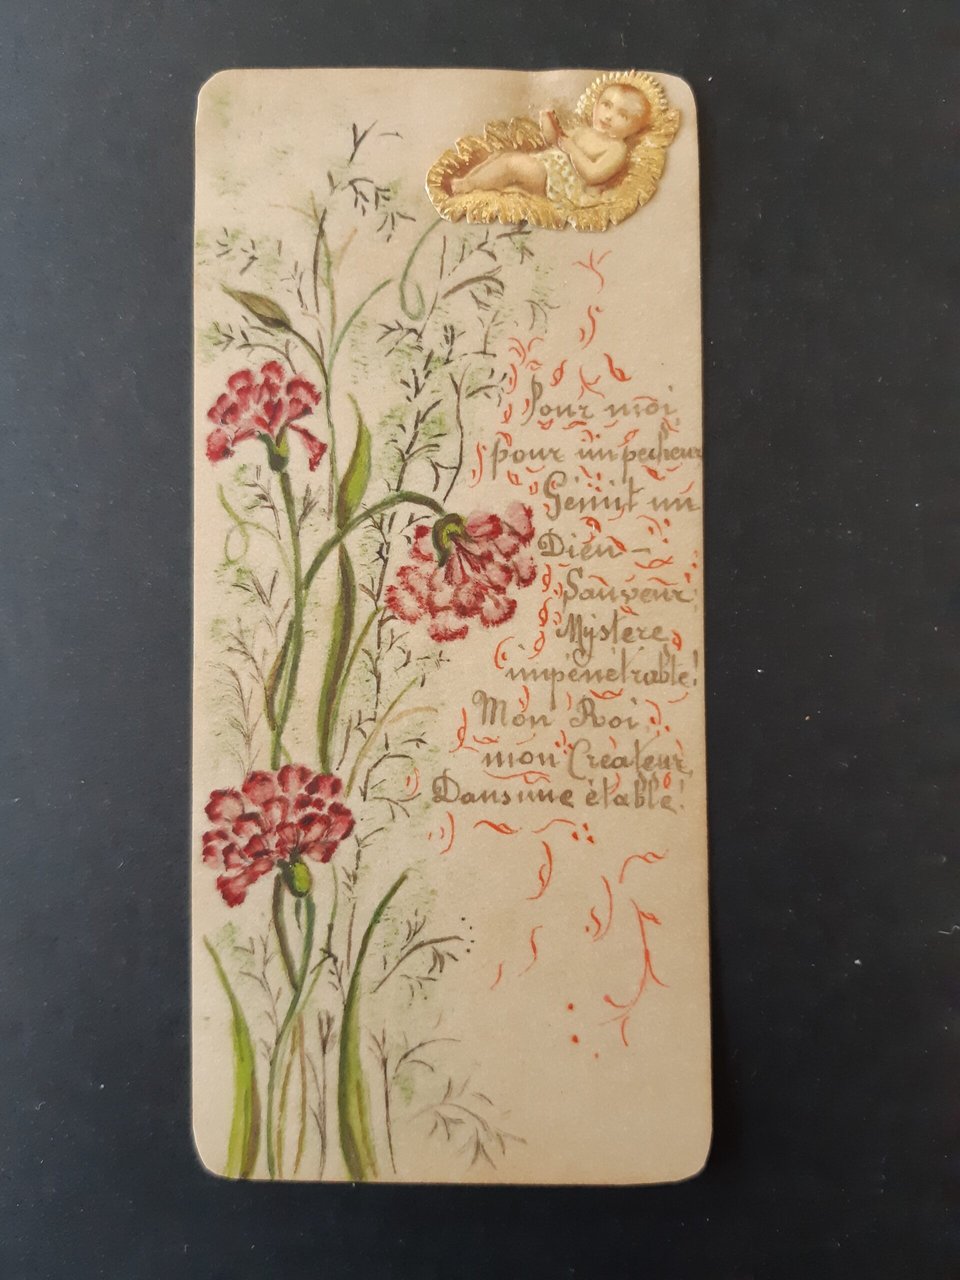 Pour moi
pour un pecheur
Gémit un
Dieu -
Sauveur!
Mystère
impénétrable!
Mon Roi,
mon Créateur,
Dans une étable!